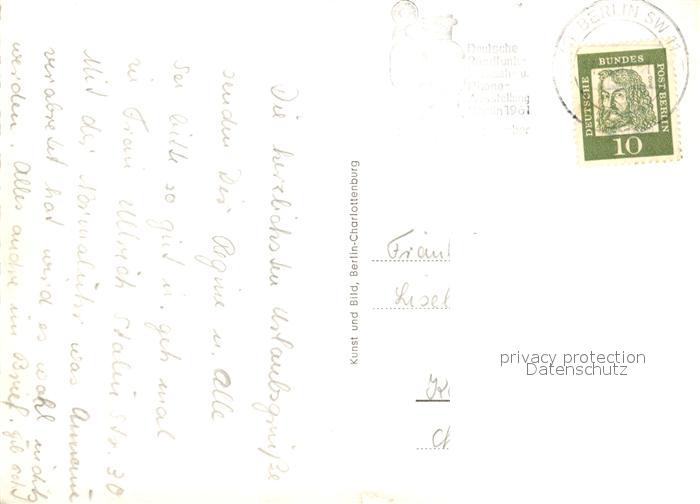 Die herzlichsten Urlaubsgrüße
senden Dir Regine u. Alle
Sei bitte so gut u. geh mal
zu Frau Ullrich Stalin Str. 30
Mit der Normaluhr was Annemie
verabredet hat wird es wohl nichts
werden. Alles andre im Brief.
Kunst und Bild, Berlin-Charlottenburg
BERLIN SW 11
Deutsche
Rundfunk-
Phono-
Ausstellung
DEUTSCHE BUNDES POST BERLIN
10
Fräul
Lisel
privacy protection
Datenschutz